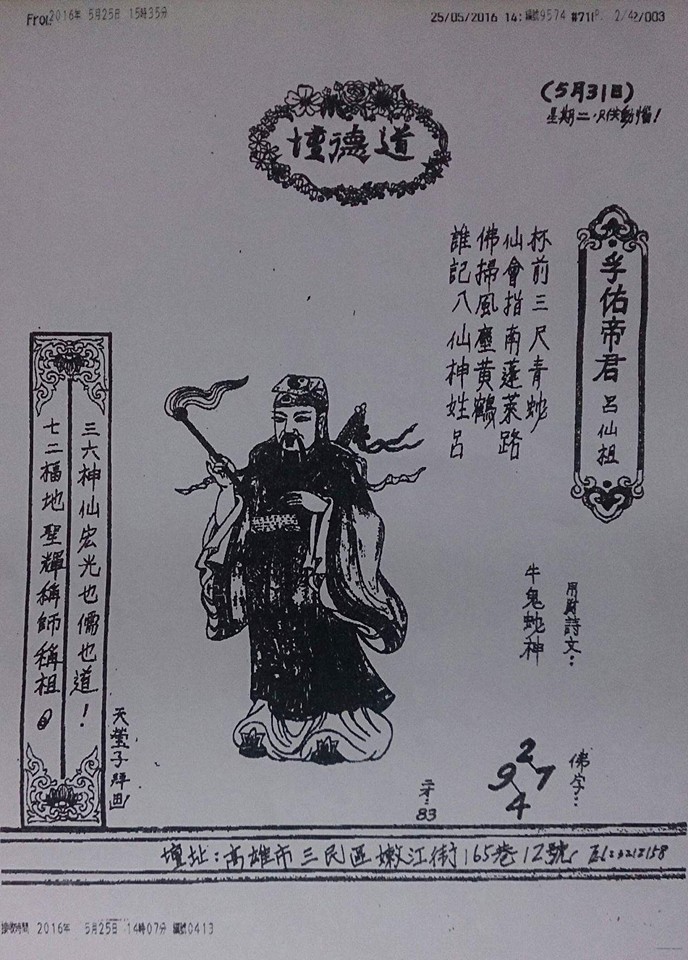 2016年 5月25日 15時35分
25/05/2016 14: 編號9574 #711P. 2/42/003
(5月31日)
星期二
道德壇
孚佑帝君 呂仙祖
杯前三尺青蛇
仙會指南蓬萊路
佛掃風塵黃鶴
誰記八仙神姓呂
三六神仙宏光也儒也道！
七二福地聖輝稱師稱祖
天瑩子拜画
用附詩文：
牛鬼蛇神
佛字…
2
9 7
4
83
壇址：高雄市三民區嫩江街165巷12號 Tel:3212158
接收時間 2016年 5月25日 14時07分 編號0413